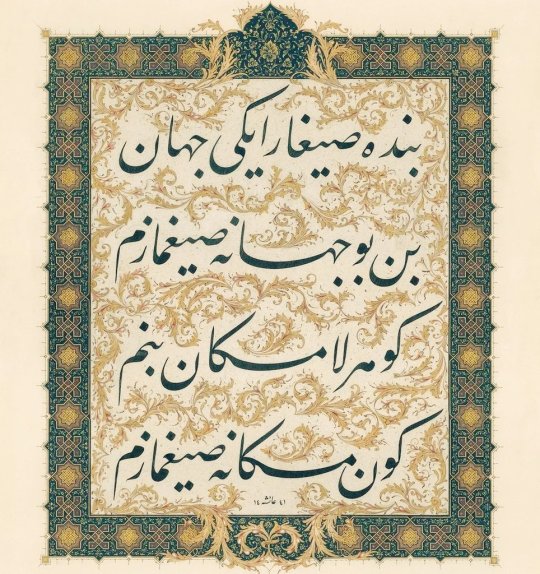 بنده صیغار ایکی جهان
بن بو جهانه صیغمازم
کوهر لامکان بنم
کون مکانه صیغمازم